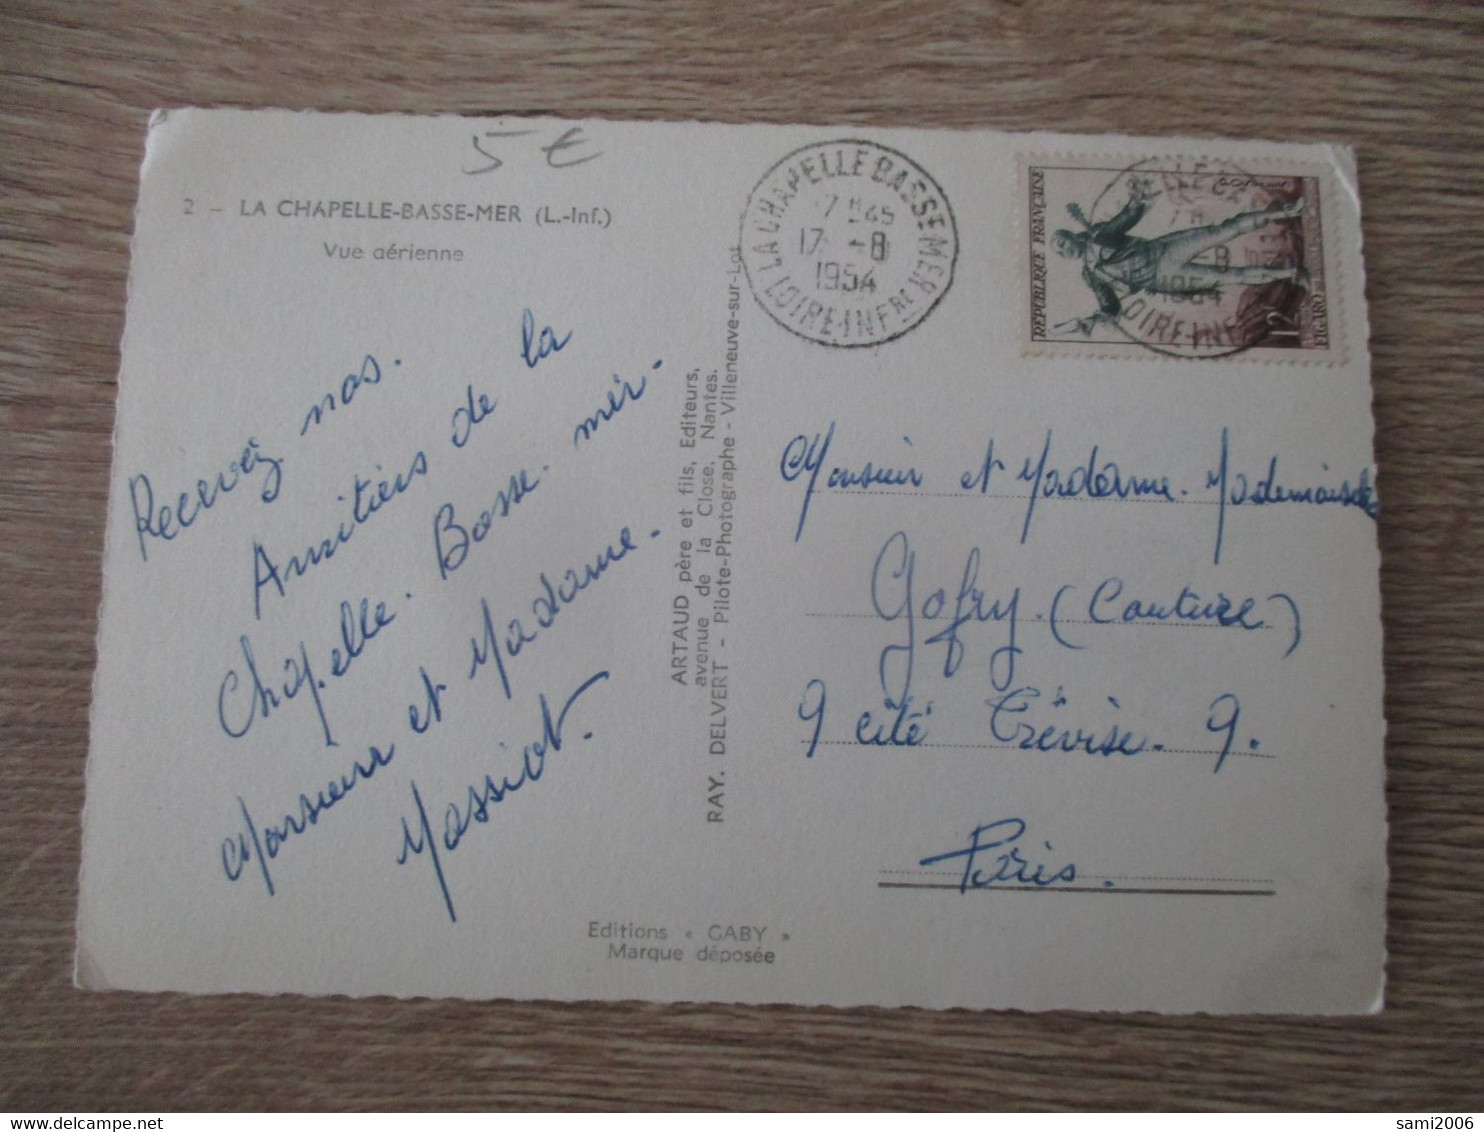 5 €
2 - LA CHAPELLE-BASSE-MER (L.-Inf.)
Vue aérienne
Recevez nos.
Amitiés de la
Chapelle. Basse. mèr.
Monsieur et Madame.
Massiot.
ARTAUD père et fils, Editeurs,
avenue de la Close, Nantes.
RAY. DELVERT - Pilote-Photographe - Villeneuve-sur-Lot
Editions « GABY »
Marque déposée
LA CHAPELLE BASSE MER
17 -8
1954
LOIRE-INFRE
REPUBLIQUE FRANÇAISE
12F
FIGARO
Monsieur et Madame. Mademoiselle
Gofry. (Couture)
9 cité Trévise. 9.
Paris.
sami2006